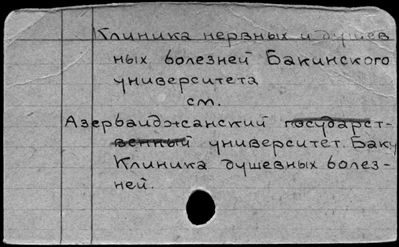 Клиника нервных и душев
ных болезней Бакинского
университета
см.
Азербайджанский государст-
венный университет. Баку
Клиника душевных болез-
ней.